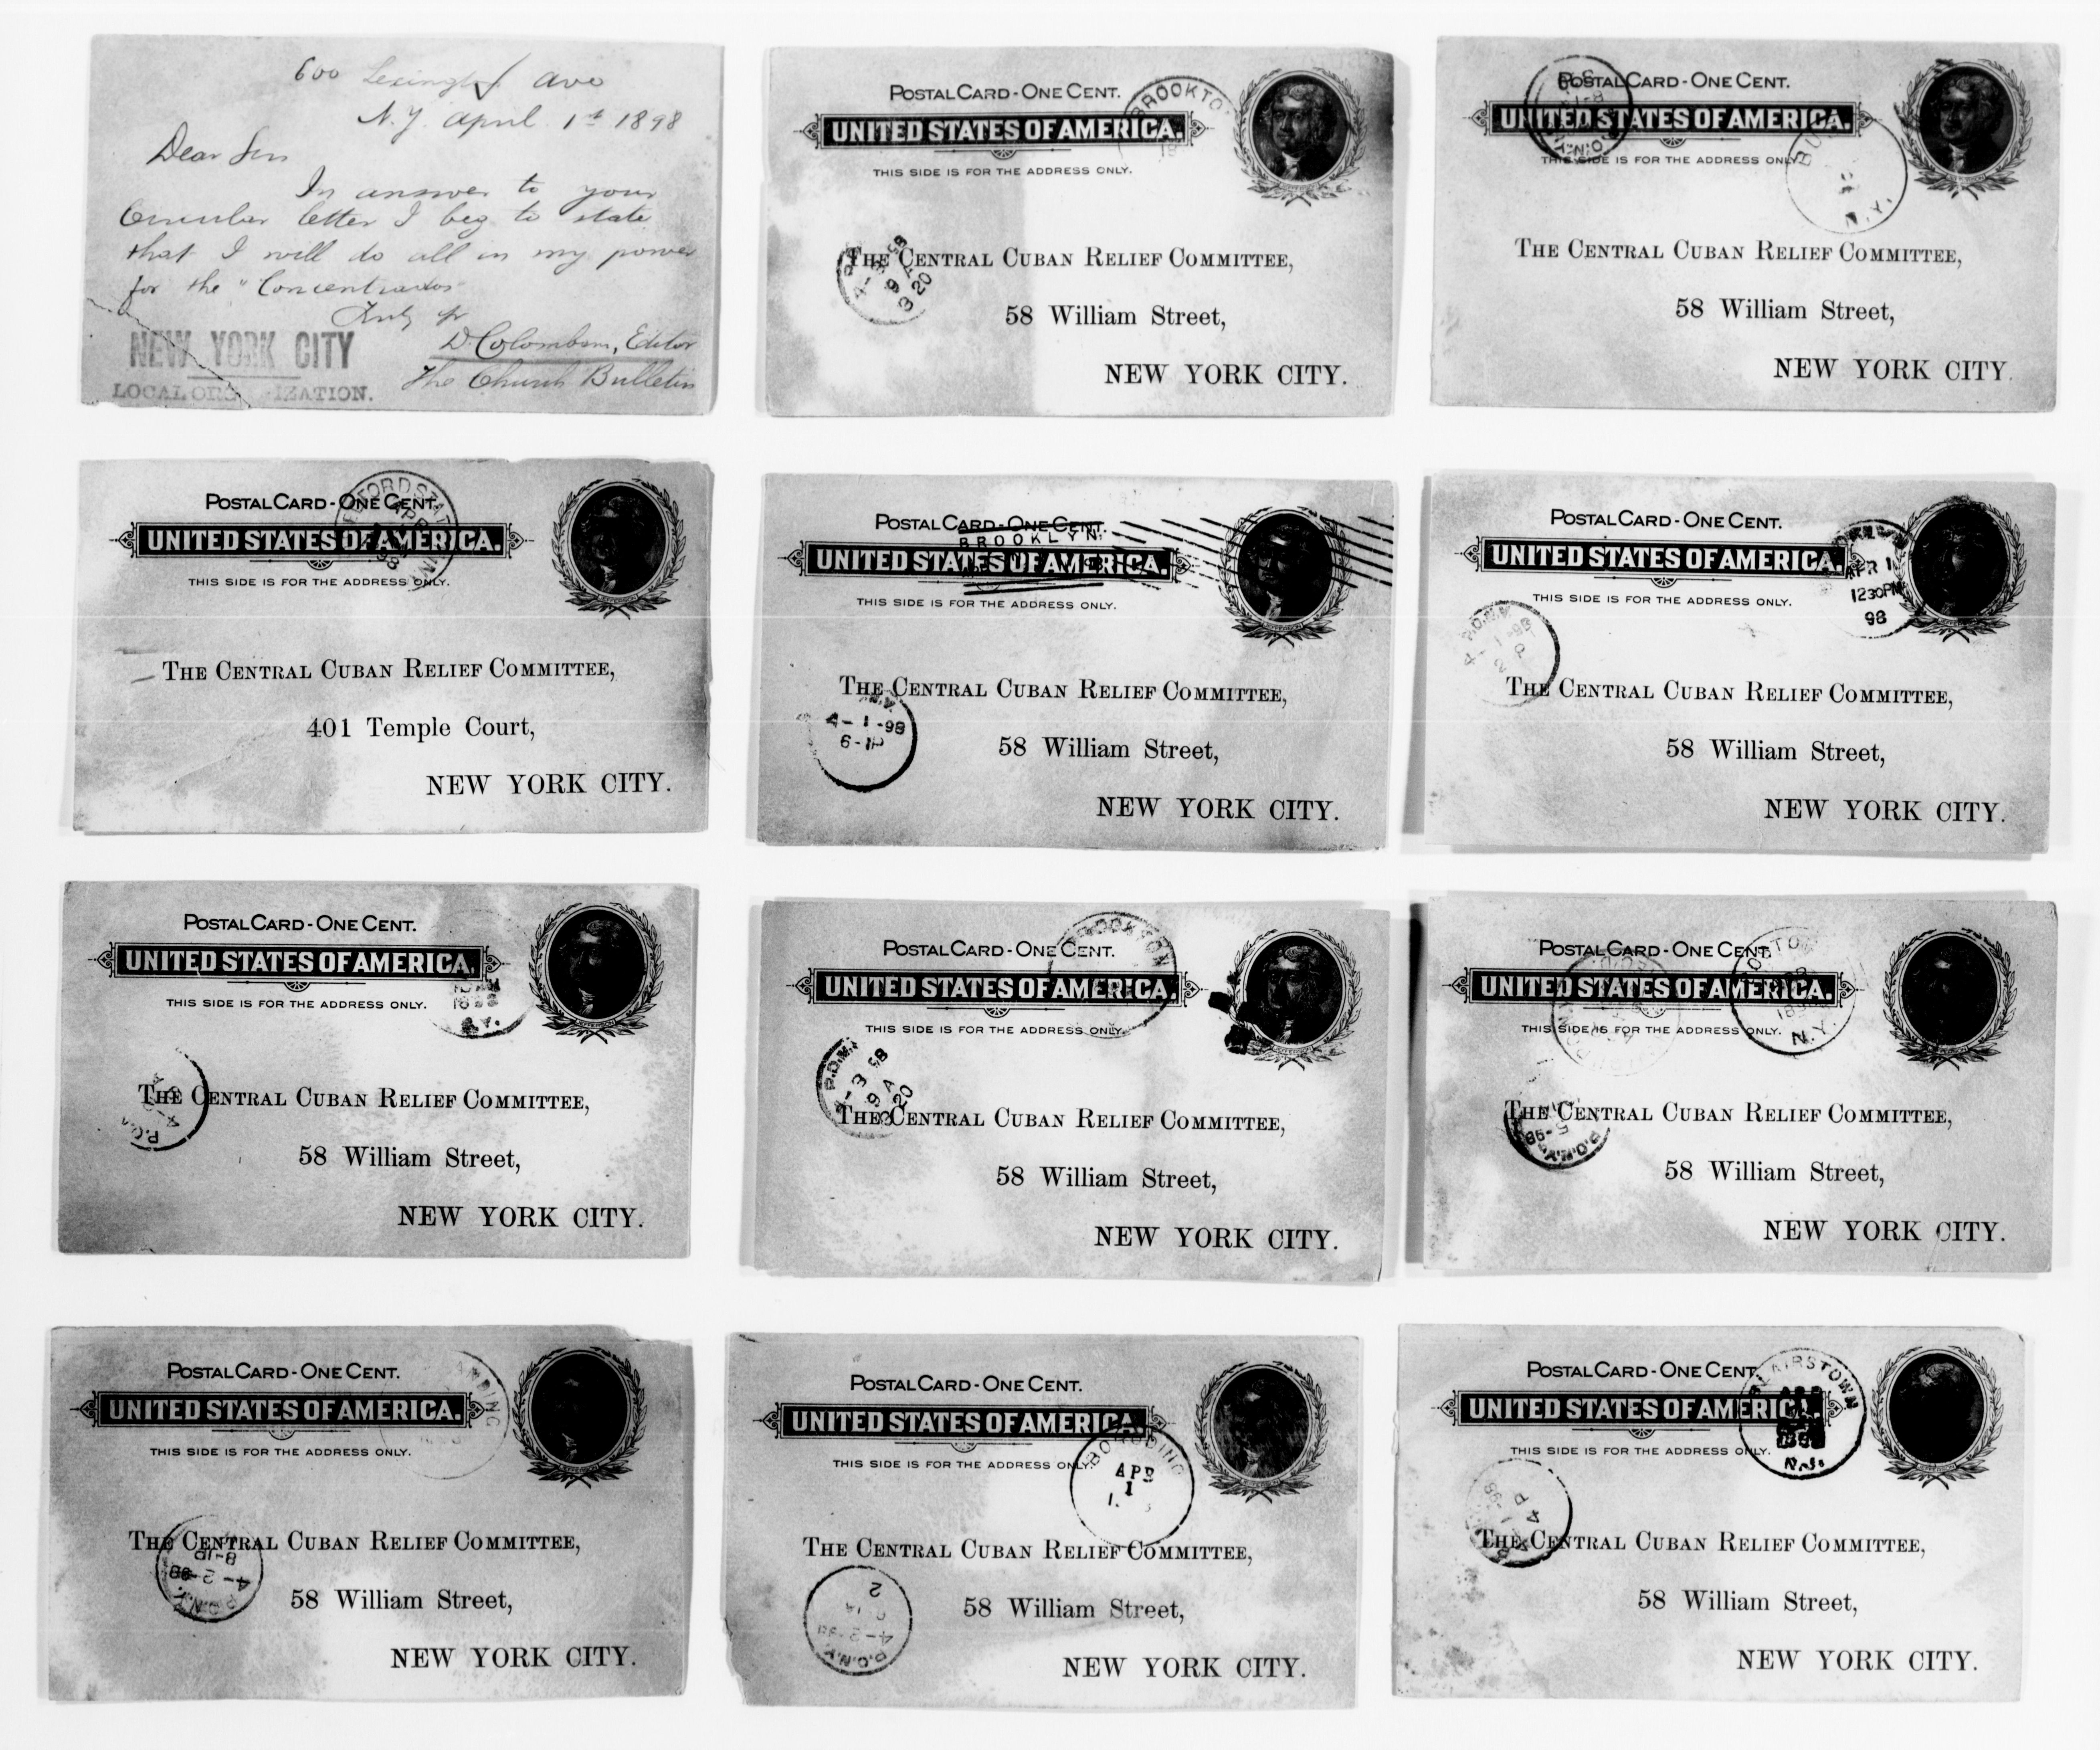 600 Lexington Ave
N.Y. April 1st 1898
Dear Sir
In answer to your
Circular letter I beg to state
that I will do all in my power
for the "Concentrados"
Truly yr
D. Colombon, Editor
The Church Bulletin
NEW YORK CITY
LOCAL
POSTAL CARD - ONE CENT.
UNITED STATES OF AMERICA.
THIS SIDE IS FOR THE ADDRESS ONLY.
BROOKTO
4-3 98
9 A
3 20
THE CENTRAL CUBAN RELIEF COMMITTEE,
58 William Street,
NEW YORK CITY.
POSTAL CARD - ONE CENT.
UNITED STATES OF AMERICA.
THIS SIDE IS FOR THE ADDRESS ONLY.
N.Y.
THE CENTRAL CUBAN RELIEF COMMITTEE,
58 William Street,
NEW YORK CITY.
POSTAL CARD - ONE CENT.
UNITED STATES OF AMERICA.
THIS SIDE IS FOR THE ADDRESS ONLY.
APR
98
THE CENTRAL CUBAN RELIEF COMMITTEE,
401 Temple Court,
NEW YORK CITY.
POSTAL CARD - ONE CENT.
BROOKLYN.
UNITED STATES OF AMERICA.
THIS SIDE IS FOR THE ADDRESS ONLY.
THE CENTRAL CUBAN RELIEF COMMITTEE,
N.Y.
4-1-98
6-1P
58 William Street,
NEW YORK CITY.
POSTAL CARD - ONE CENT.
UNITED STATES OF AMERICA.
APR 1
1230PM
98
THIS SIDE IS FOR THE ADDRESS ONLY.
P.O.N.Y.
4-1-98
2 P
THE CENTRAL CUBAN RELIEF COMMITTEE,
58 William Street,
NEW YORK CITY.
POSTAL CARD - ONE CENT.
UNITED STATES OF AMERICA.
THIS SIDE IS FOR THE ADDRESS ONLY.
N.Y.
THE CENTRAL CUBAN RELIEF COMMITTEE,
58 William Street,
NEW YORK CITY.
POSTAL CARD - ONE CENT.
UNITED STATES OF AMERICA.
THIS SIDE IS FOR THE ADDRESS ONLY.
4-3 98
9 A
3 20
THE CENTRAL CUBAN RELIEF COMMITTEE,
58 William Street,
NEW YORK CITY.
POSTAL CARD - ONE CENT.
UNITED STATES OF AMERICA.
THIS SIDE IS FOR THE ADDRESS ONLY.
N.Y.
THE CENTRAL CUBAN RELIEF COMMITTEE,
P.O.N.Y.
58 William Street,
NEW YORK CITY.
POSTAL CARD - ONE CENT.
UNITED STATES OF AMERICA.
THIS SIDE IS FOR THE ADDRESS ONLY.
THE CENTRAL CUBAN RELIEF COMMITTEE,
P.O.N.Y.
4-2-98
8-1P
58 William Street,
NEW YORK CITY.
POSTAL CARD - ONE CENT.
UNITED STATES OF AMERICA.
THIS SIDE IS FOR THE ADDRESS ONLY.
BORODINO
APR
1
THE CENTRAL CUBAN RELIEF COMMITTEE,
P.O.N.Y.
4-2-98
58 William Street,
NEW YORK CITY.
POSTAL CARD - ONE CENT.
UNITED STATES OF AMERICA.
THIS SIDE IS FOR THE ADDRESS ONLY.
BLAIRSTOWN
N.J.
THE CENTRAL CUBAN RELIEF COMMITTEE,
58 William Street,
NEW YORK CITY.